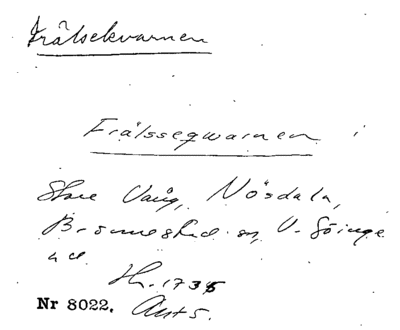 Frälsekvarnen
Frälsseqwarnen i
Store Vång, Nösdala,
Brönnestad sn, V. Göinge
hd.
Hr. 1735
Nr 8022. Ant 5.